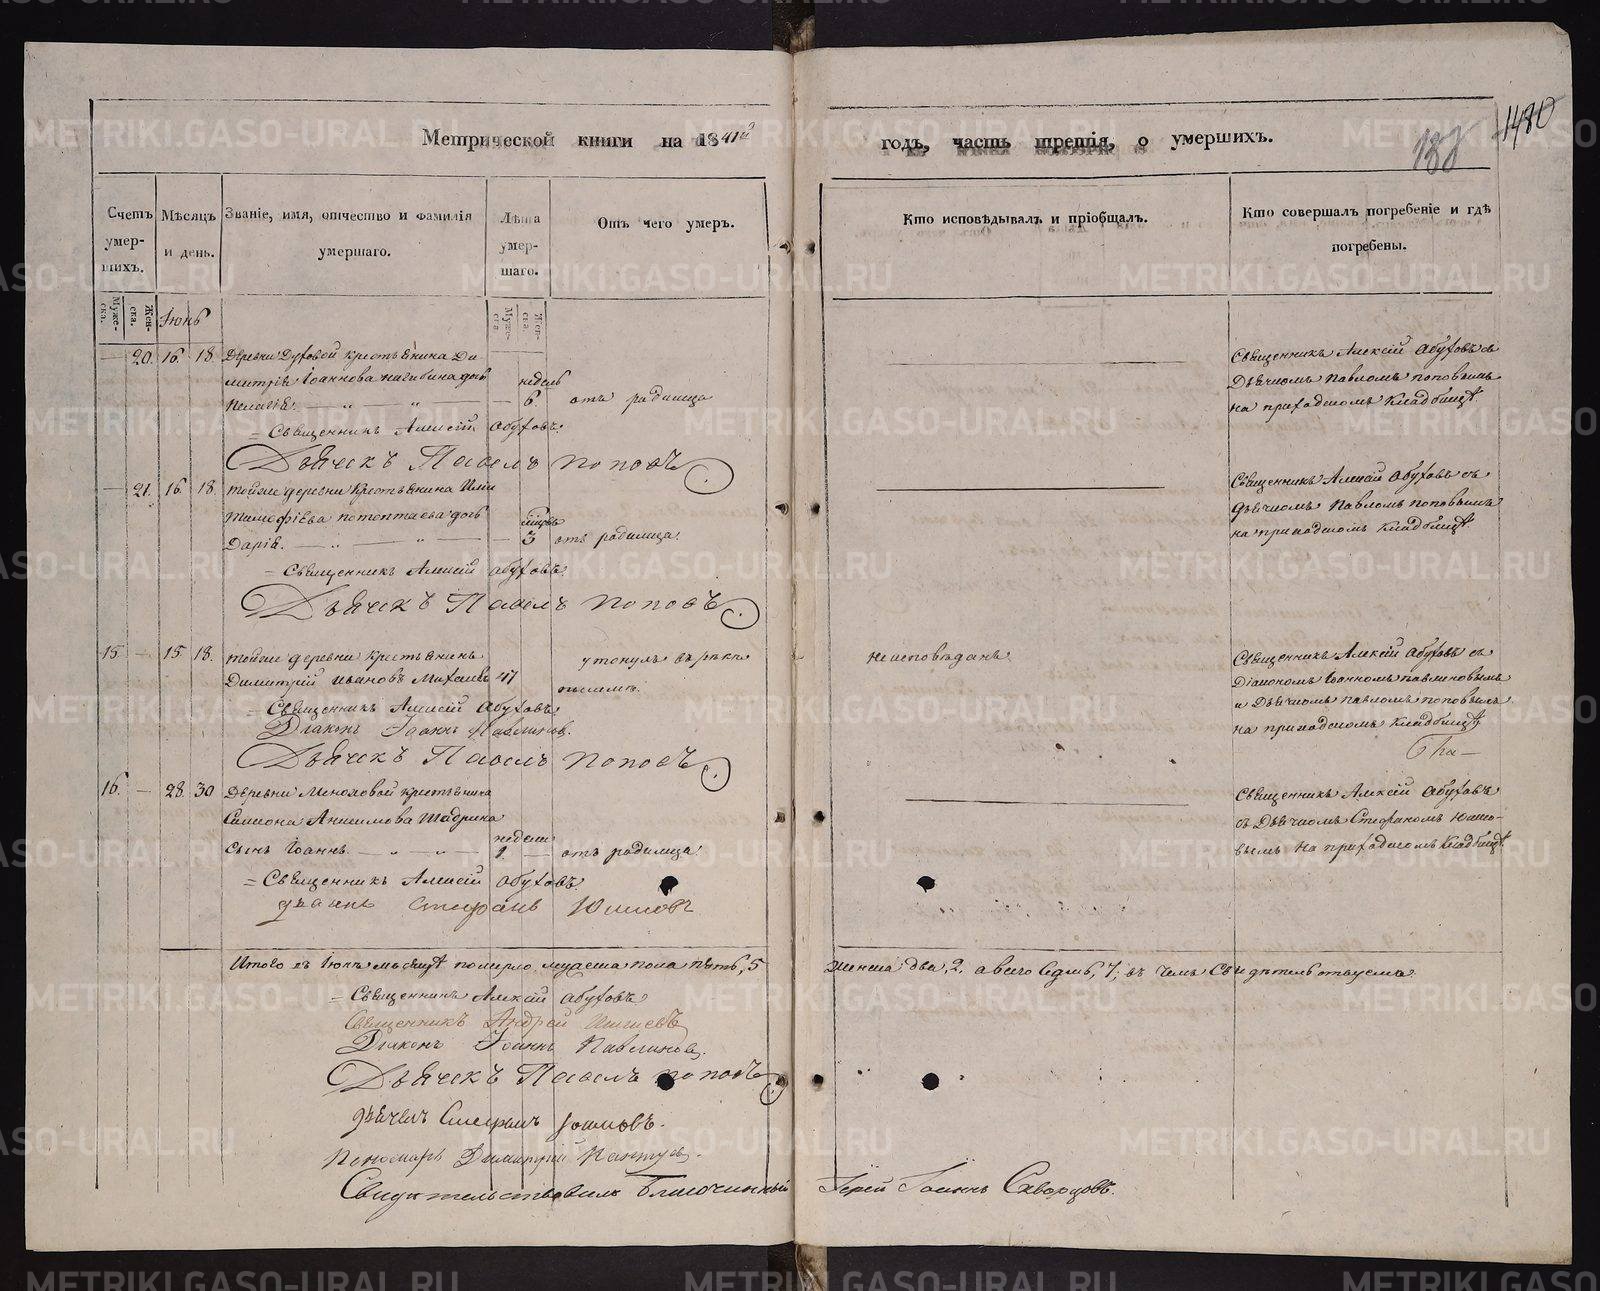 Метрической книги на 1841й
Счетъ умерших.
Мѣсяцъ и день.
Званіе, имя, отчество и фамилія умершаго.
Лѣта умершаго.
Отъ чего умеръ.
Муже-ска.
Жен-ска.
Іюнь
Муже-ска.
Жен-ска.
20. 16 18. Деревни Духовой крестьянина Ди
митрія Іоаннова дочь недель
Пелагія. 6. отъ родимца
Священникъ Алексій Обуховъ.
Дьячекъ Павелъ Поповъ
21. 16. 18. тойже деревни крестьянина Иліи
Тимофѣева потоптаева дочь
Дарія. 3 отъ родимца.
Священникъ Алексій Обуховъ.
Дьячекъ Павелъ Поповъ
15 15. 18. тойже деревни крестьянинъ утонулъ въ рѣкѣ
Димитрій Ивановъ 47
Священникъ Алексій Обуховъ
Діаконъ Іоаннъ Павлиновъ.
Дьячекъ Павелъ Поповъ
16. 28. 30 Деревни крестьянина
Симеона Анисимова Шабрина
недели
Сынъ Іоаннъ. 1. отъ родимца.
Священникъ Алексій Обуховъ.
Стефанъ
Итого въ Іюнѣ месяцѣ померло мужеска пола пять, 5
Священникъ Алексій Обуховъ
Священникъ Андрей
Діаконъ Іоаннъ Павлиновъ.
Дьячекъ Павелъ Поповъ
дьячекъ Стефанъ
Пономарь Димитрій
Свидетельствовалъ Благочинный
годъ, часть третія, о умершихъ.
1480
Кто исповѣдывалъ и пріобщалъ.
Кто совершалъ погребеніе и гдѣ погребены.
Священникъ Алексій Обуховъ съ
Дьячкомъ Павломъ поповымъ
на приходскомъ Кладбищѣ
Священникъ Алексій Обуховъ съ
дьячкомъ Павломъ поповымъ
на приходскомъ кладбищѣ.
неисповѣданъ Священникъ Алексій Обуховъ съ
Діакономъ Іоанномъ павлиновымъ
и Дьячкомъ павломъ поповымъ
на приходскомъ Кладбищѣ
Священникъ Алексій Обуховъ
съ Дьячкомъ Стефаномъ
на приходскомъ Кладбищѣ
женска два, 2, а всего Седмь, 7, въ чемъ Свидѣтельствуемъ.
Іерей Іоаннъ Скворцовъ.
METRIKI.GASO-URAL.RU